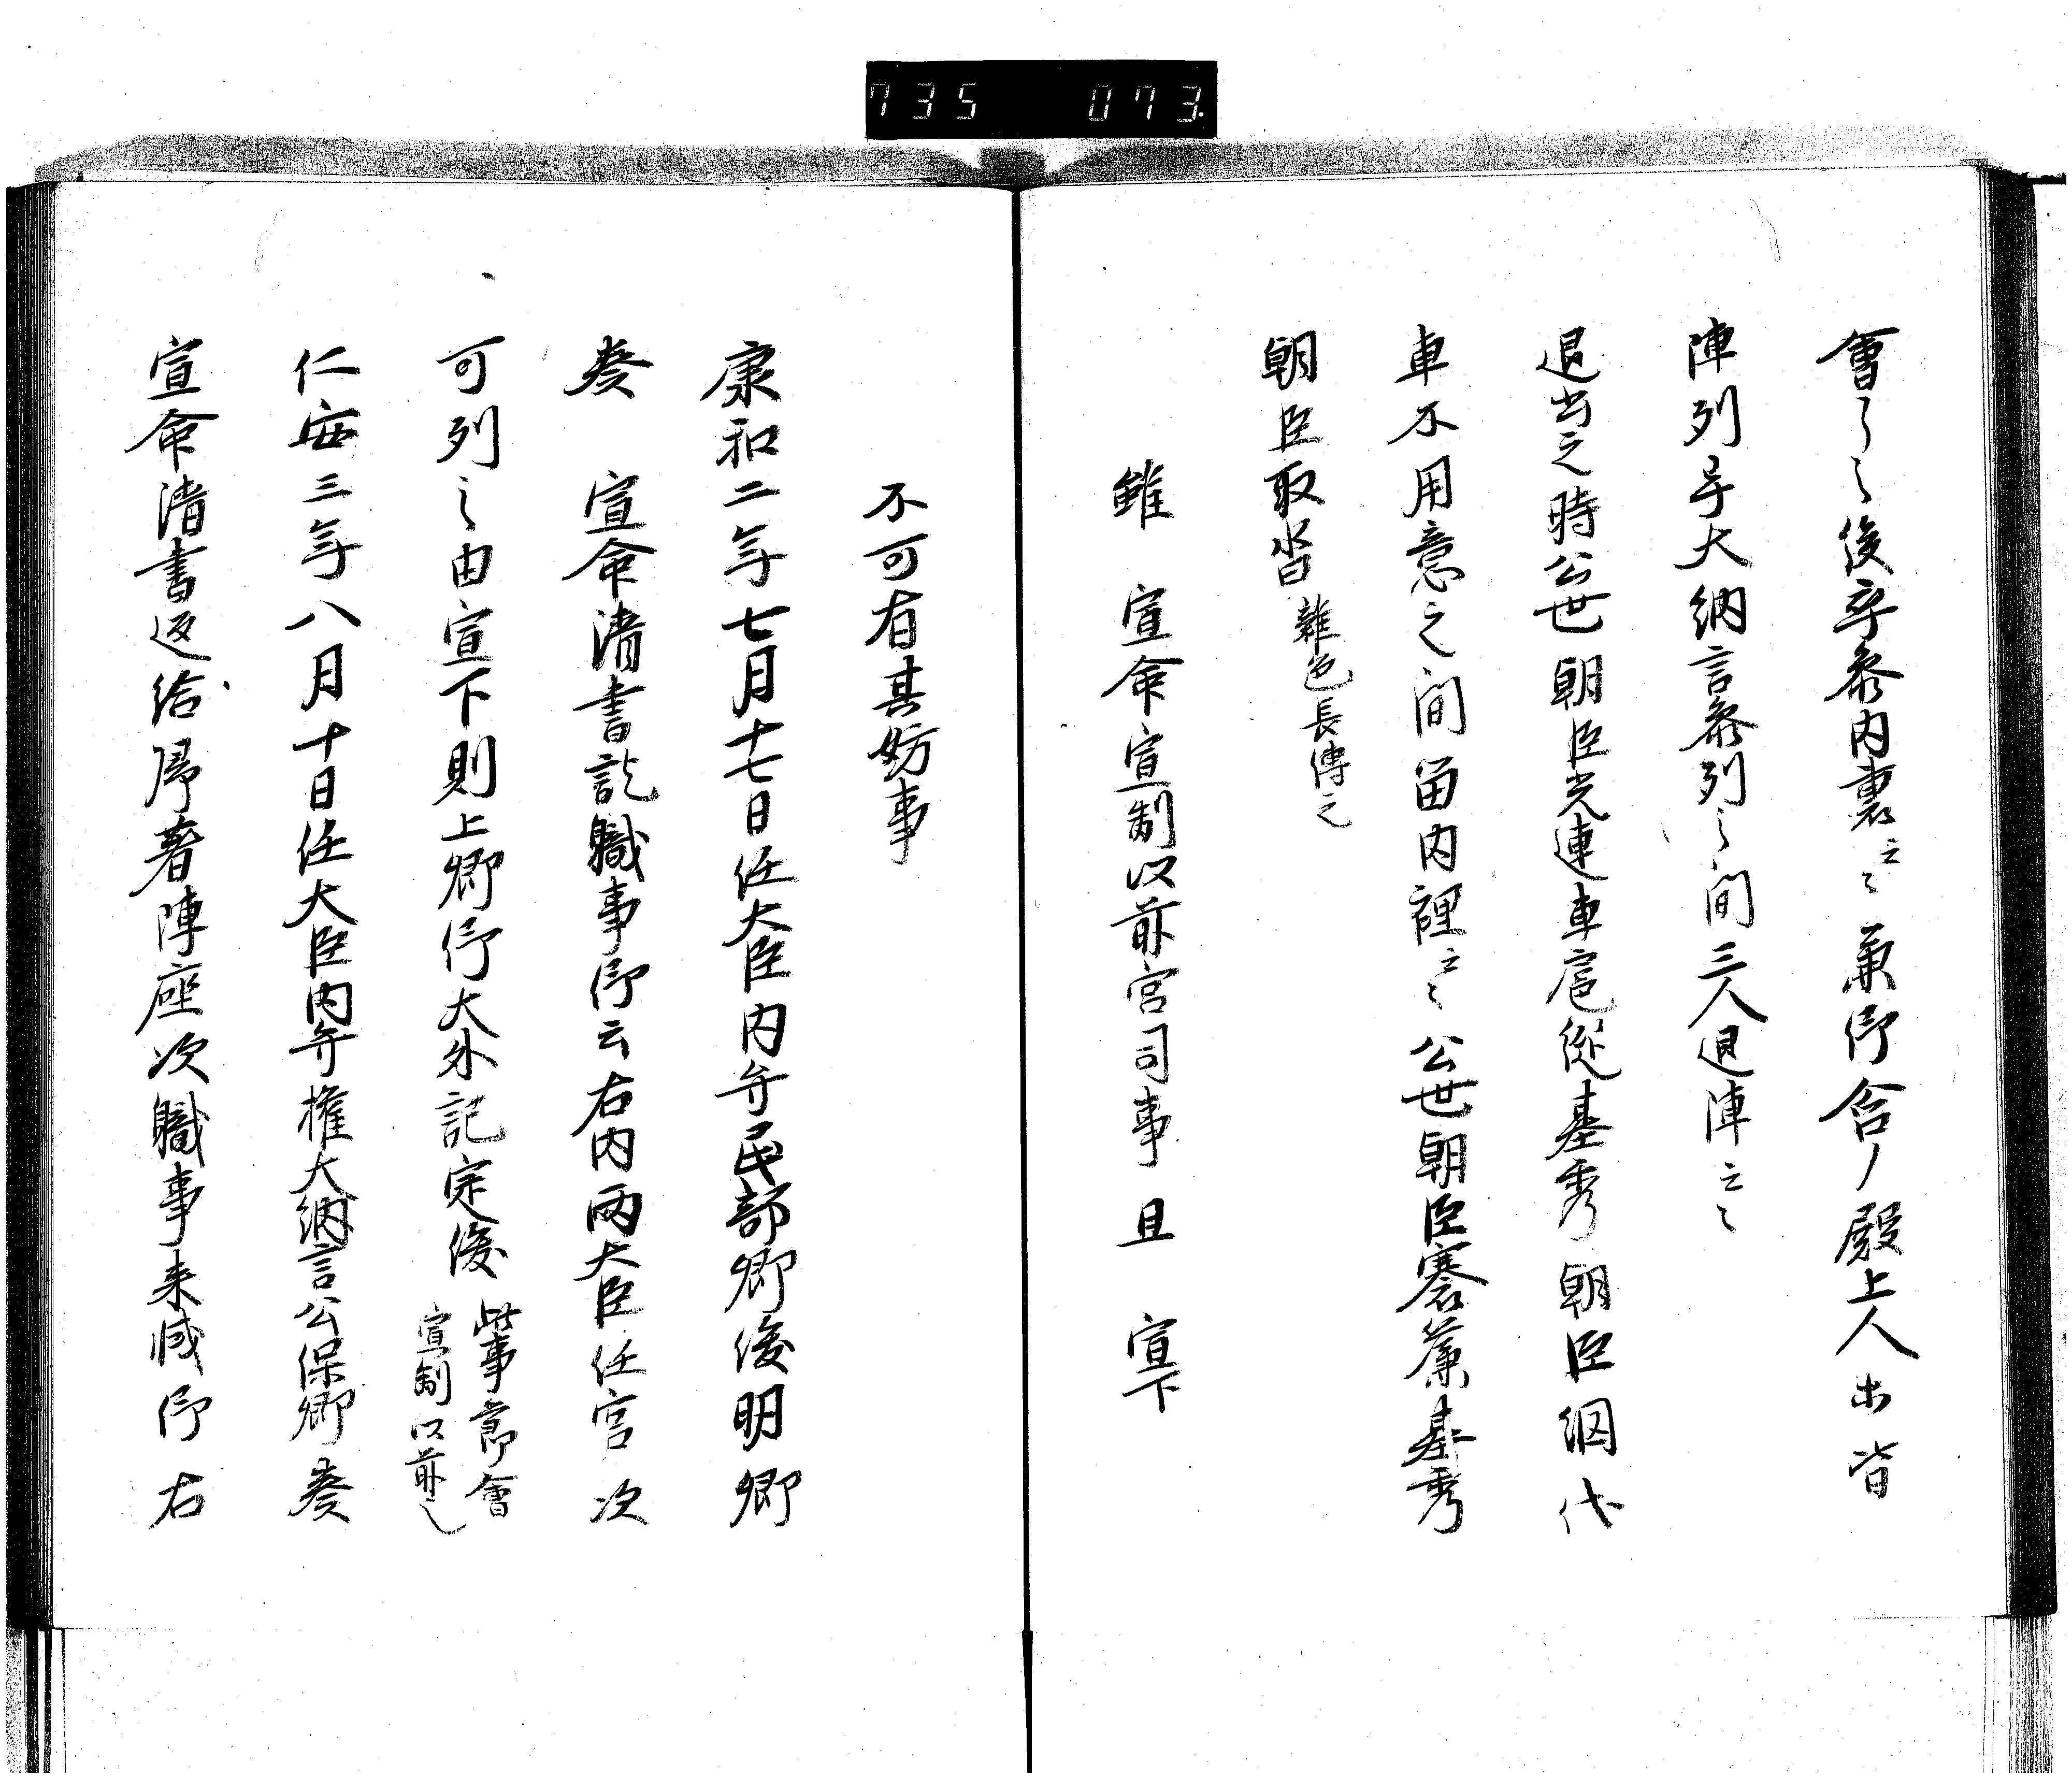 735 073
會了之後卒参内裏云々兼仰含ノ殿上人出皆
陣列于大納言参列之間三人退陣云々
退出之時公世朝臣光連車扈従基秀朝臣網代
車不用意之間留内裡云々公世朝臣褰簾基秀
朝臣取沓雜色長傳之
雖 宣命宣制以前宮司事且 宣下
不可有其妨事
康和二年七月十七日任大臣内弁民部卿俊明卿
奏 宣命清書訖職事仰云右内両大臣任宮次
可列之由宣下則上卿仰大外記定俊此事節會
宣制以前之
仁安三年八月十日任大臣内弁権大納言公保卿奏
宣命清書返給歸著陣座次職事来減仰右